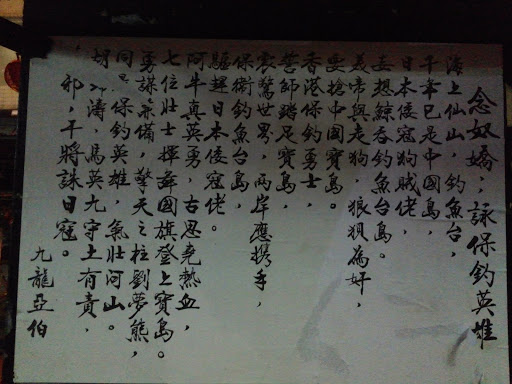 念奴嬌，詠保釣英雄
海上仙山，釣魚台，
千年已是中國島，
日本倭寇狗賊佬，
妄想鯨吞釣魚台島。
美帝與走狗，狼狽為奸，
要搶中國寶島。
香港保釣勇士，
誓師踏足寶島，
震驚世界，兩岸應携手，
保衛釣魚台島，
驅趕日本倭寇佬。
阿牛真英勇，古思堯熱血，
七位壯士揮舞國旗登上寶島。
勇謀兼備，擎天之柱劉夢熊，
同保釣英雄，氣壯河山。
胡濤、馬英九守土有責，
邪，干將誅日寇。
九龍亞伯